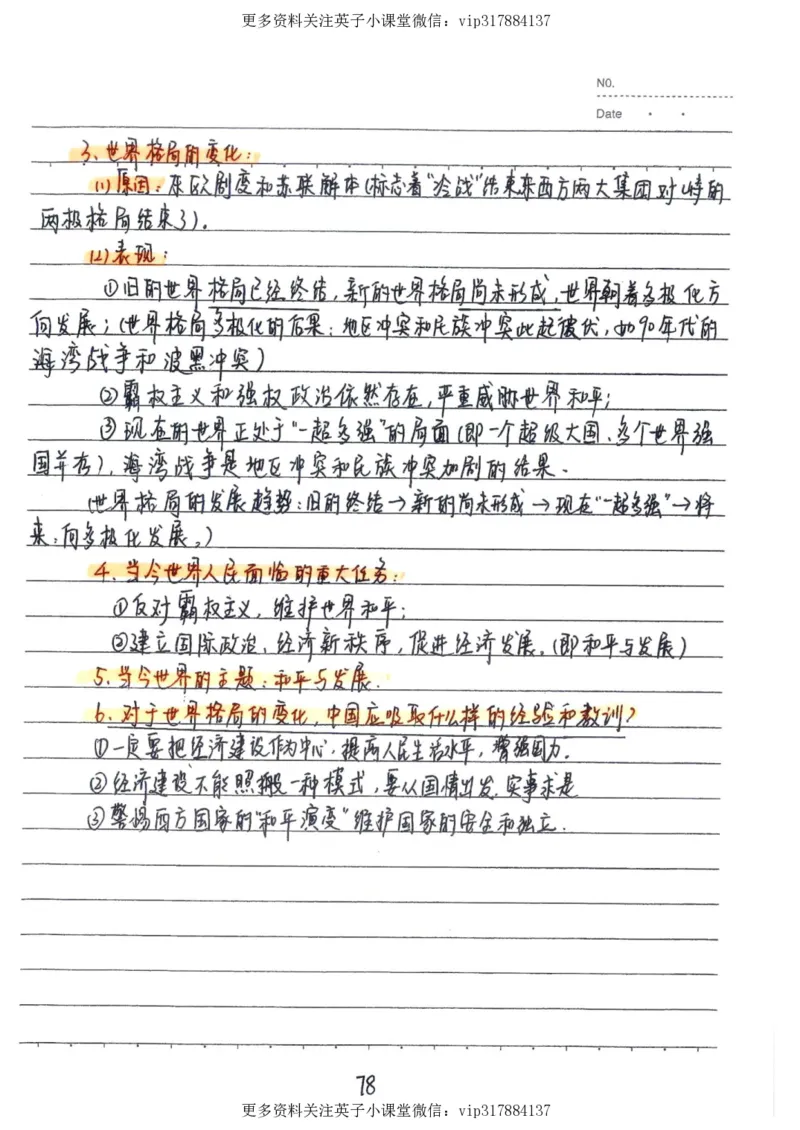 更多资料关注英子小课堂微信：vip317884137
NO.
Date
3、世界格局的变化：
(1)原因：东欧剧变和苏联解体(标志着"冷战"结束东西方两大集团对峙的
两极格局结束了)。
(2)表现：
①旧的世界格局已经终结，新的世界格局尚未形成，世界朝着多极化方
向发展；(世界格局多极化的后果：地区冲突和民族冲突此起彼伏，如90年代的
海湾战争和波黑冲突)
②霸权主义和强权政治依然存在，严重威胁世界和平；
③现在的世界正处于"一超多强"的局面(即一个超级大国、多个世界强
国并存)，海湾战争是地区冲突和民族冲突加剧的结果、
(世界格局的发展趋势：旧的终结→新的尚未形成→现在"一超多强"→将
来，向多极化发展。)
4、当今世界人民面临的重大任务：
①反对霸权主义，维护世界和平；
②建立国际政治、经济新秩序，促进经济发展。(即和平与发展)
5、当今世界的主题：和平与发展.
6、对于世界格局的变化，中国应吸取什么样的经验和教训？
①一定要把经济建设作为中心，提高人民生活水平，增强国力.
②经济建设不能照搬一种模式，要从国情出发，实事求是
③警惕西方国家的"和平演变"维护国家的安全和独立.
78
更多资料关注英子小课堂微信：vip317884137